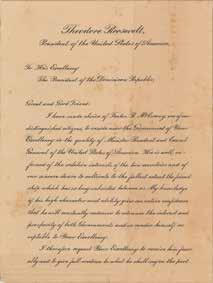 Theodore Roosevelt,
President of the United States of America,
To His Excellency
The President of the Dominican Republic.
Great and Good Friend:
I have made choice of Fenton R. McCreery, one of our
distinguished citizens, to reside near the Government of Your
Excellency in the quality of Minister Resident and Consul
General of the United States of America. He is well in-
formed of the relative interests of the two countries and of
our sincere desire to cultivate to the fullest extent the friend-
ship which has so long subsisted between us. My knowledge
of his high character and ability gives me entire confidence
that he will constantly endeavor to advance the interest and
prosperity of both Governments and so render himself ac-
ceptable to Your Excellency.
I therefore request Your Excellency to receive him favor-
ably and to give full credence to what he shall say on the part